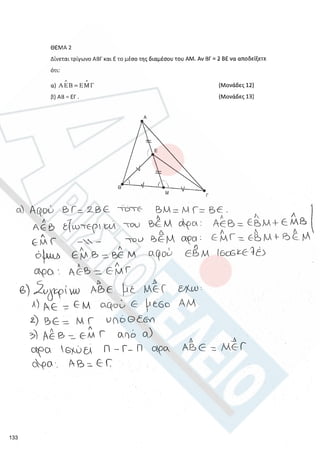 ΘΕΜΑ 2
Δίνεται τρίγωνο ΑΒΓ και Ε το μέσο της διαμέσου του ΑΜ. Αν ΒΓ = 2 ΒΕ να αποδείξετε
ότι:
α) ΑÊΒ = ΕM̂Γ (Μονάδες 12)
β) ΑΒ = ΕΓ. (Μονάδες 13)
Α
Ε
Β
Μ
Γ
α) Αφού ΒΓ = 2ΒΕ τότε ΒΜ = ΜΓ = ΒΕ.
ΑÊΒ εξωτερική του ΒÊΜ άρα: ΑÊΒ = ΕB̂Μ + ΕM̂Β
ΕM̂Γ -\\- του ΒÊΜ άρα: ΕM̂Γ = ΕB̂Μ + ΒÊΜ
όμως ΕM̂Β = ΒÊΜ αφού ΕB̂Μ ισοσκελές
άρα: ΑÊΒ = ΕM̂Γ
β) Συγκρίνω ΑB̂Ε με ΜÊΓ έχω:
1) ΑΕ = ΕΜ αφού Ε μέσο ΑΜ
2) ΒΕ = ΜΓ υπόθεση
3) ΑÊΒ = ΕM̂Γ από α)
άρα ισχύει Π-Γ-Π άρα ΑB̂Ε = ΜÊΓ
άρα. ΑΒ = ΕΓ.
133